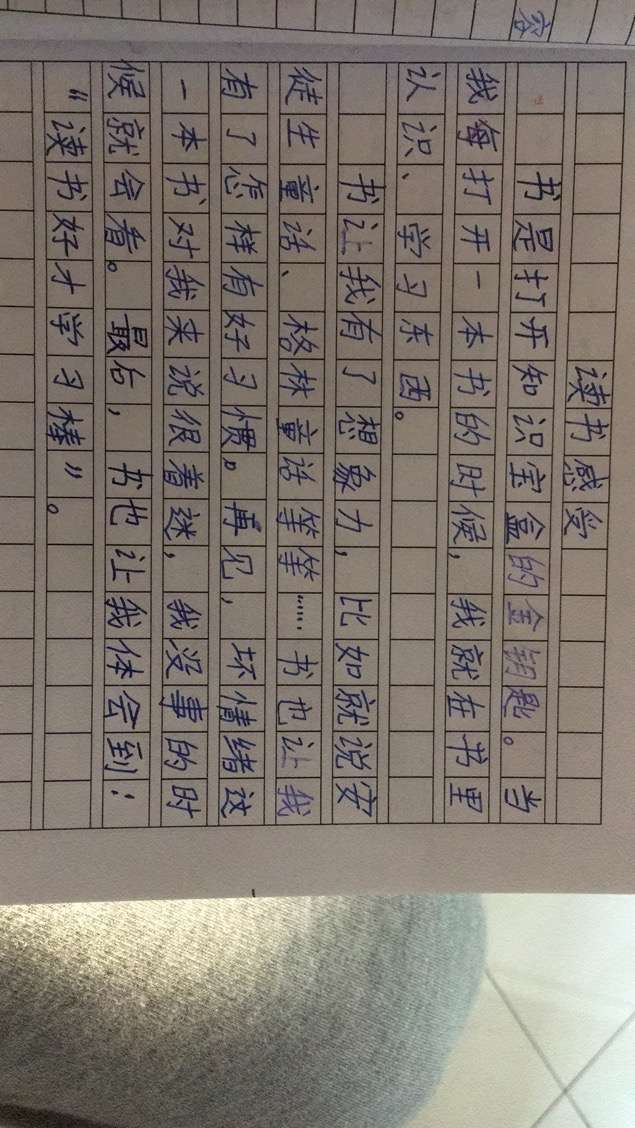 容
读书感受
书是打开知识宝盒的金钥匙。当
我每打开一本书的时候，我就在书里
认识、学习东西。
书让我有了想象力，比如就说安
徒生童话、格林童话等等……书也让我
有了怎样有好习惯。再见，坏情绪这
一本书对我来说很着迷，我没事的时
候就会看。最后，书也让我体会到：
“读书好才学习棒”。